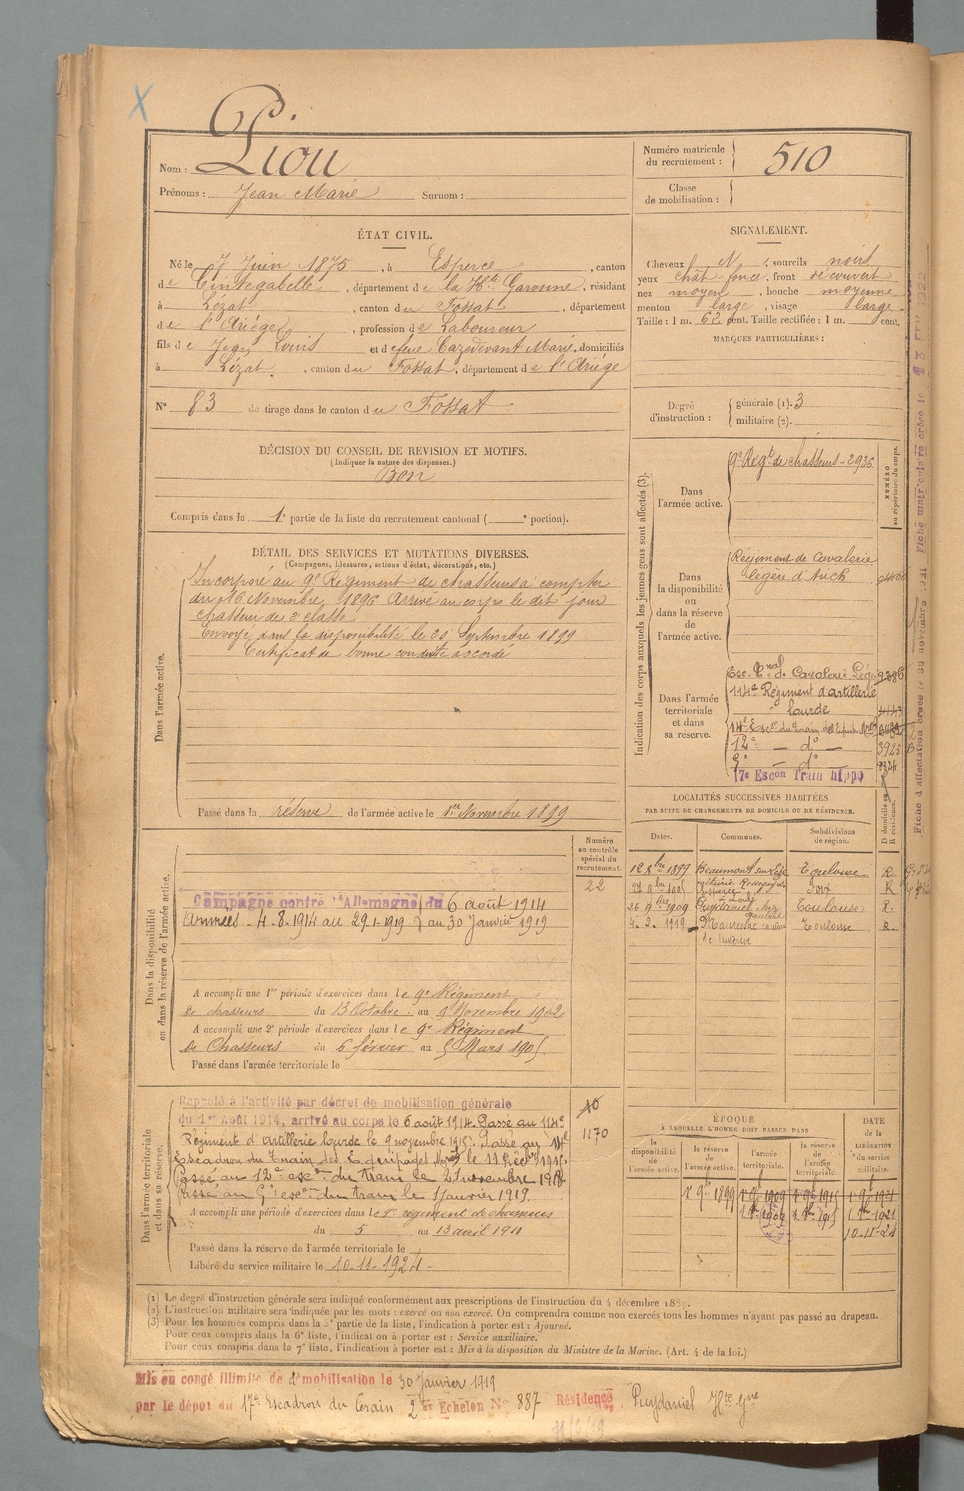 X
Nom : Piou
Prénoms : Jean Marie Surnom :
Numéro matricule du recrutement : 510
Classe de mobilisation :
ÉTAT CIVIL.
Né le 7 Juin 1875, à Esperce, canton
de Cintegabelle, département de la Hte Garonne, résidant
à Lézat, canton du Fossat, département
de l'Ariége, profession de Laboureur
fils de Jean Louis et de feue Cazedevant Marie, domiciliés
à Lézat, canton du Fossat, département de l'Ariége
N° 83 de tirage dans le canton du Fossat
SIGNALEMENT.
Cheveux N, sourcils noirs
yeux chât. foncé, front découvert
nez moyen, bouche moyenne
menton large, visage large
Taille : 1 m. 62 cent. Taille rectifiée : 1 m. cent.
MARQUES PARTICULIÈRES :
Degré d'instruction : générale (1). 3
militaire (2).
DÉCISION DU CONSEIL DE REVISION ET MOTIFS.
(Indiquer la nature des dispenses.)
Bon
Compris dans la 1e partie de la liste du recrutement cantonal ( e portion).
DÉTAIL DES SERVICES ET MUTATIONS DIVERSES.
(Campagnes, blessures, actions d'éclat, décorations, etc.)
Dans l'armée active.
Incorporé au 9e Régiment de chasseurs à compter
du 16 Novembre 1896 Arrivé au corps le dit jour
chasseur de 2e classe.
Envoyé dans la disponibilité le 20 Septembre 1899
Certificat de bonne conduite accordé
Passé dans la réserve de l'armée active le 1er Novembre 1899
Indication des corps auxquels les jeunes gens sont affectés (3).
NUMÉRO au répertoire du corps.
Dans l'armée active.
9e Régt de chasseurs - 2936
Dans la disponibilité ou dans la réserve de l'armée active.
Régiment de Cavalerie
légère d'Auch
Dans l'armée territoriale et dans sa réserve.
Esc. de Cavalerie Lég 9286
114e Régiment d'artillerie
lourde
12e — do — 3923
— do —
17e Escon Train hippo
LOCALITÉS SUCCESSIVES HABITÉES
PAR SUITE DE CHANGEMENTS DE DOMICILE OU DE RÉSIDENCE.
Dates. Communes. Subdivisions de région. D domicile ou R résidence.
1899 Beaumont sur Lèze Toulouse R
1905 Foix R
26 1909 Puydaniel Toulouse R.
4. 2. 1919 Mauressac Toulouse R.
Dans la disponibilité ou dans la réserve de l'armée active.
Numéro au contrôle spécial du recrutement.
22
Campagne contre l'Allemagne du 6 août 1914
Armées - 4-8-1914 au 29-1-1919 au 30 Janvier 1919
A accompli une 1re période d'exercices dans le 9e Régiment
de chasseurs du 13 Octobre au 9 Novembre 1902
A accompli une 2e période d'exercices dans le 9e Régiment
de Chasseurs du 6 février au 5 Mars 1905
Passé dans l'armée territoriale le
Dans l'armée territoriale et dans sa réserve.
Rappelé à l'activité par décret de mobilisation générale
du 1er Août 1914, arrivé au corps le 6 août 1914. Passé au 114e
Régiment d'artillerie lourde le 9 novembre 1915. Passé au 14e
Escadron du Train des Equipages le 11 Déc 1915
Passé au 12e escon du train le 21 novembre 1918
Passé au escon du train le 1 janvier 1919.
A accompli une période d'exercices dans le 9e régiment de chasseurs
du 5 au 13 avril 1911
Passé dans la réserve de l'armée territoriale le
Libéré du service militaire le 10-11-1924
1170
ÉPOQUE
À LAQUELLE L'HOMME DOIT PASSER DANS
la disponibilité de l'armée active. la réserve de l'armée active. l'armée territoriale. la réserve de l'armée territoriale.
DATE de la LIBÉRATION du service militaire.
1er 9bre 1899 1er 9bre 1909 1er 9bre 1915 1er 9bre 1921
10-11-24
(1) Le degré d'instruction générale sera indiqué conformément aux prescriptions de l'instruction du 4 décembre 1889.
(2) L'instruction militaire sera indiquée par les mots : exercé ou non exercé. On comprendra comme non exercés tous les hommes n'ayant pas passé au drapeau.
(3) Pour les hommes compris dans la 5e partie de la liste, l'indication à porter est : Ajourné.
Pour ceux compris dans la 6e liste, l'indication à porter est : Service auxiliaire.
Pour ceux compris dans la 7e liste, l'indication à porter est : Mis à la disposition du Ministre de la Marine. (Art. 4 de la loi.)
Mis en congé illimité de démobilisation le 30 Janvier 1919
par le dépot du 17e Escadron du Train 2e Echelon N° 887 Résidence Puydaniel Hte Gne